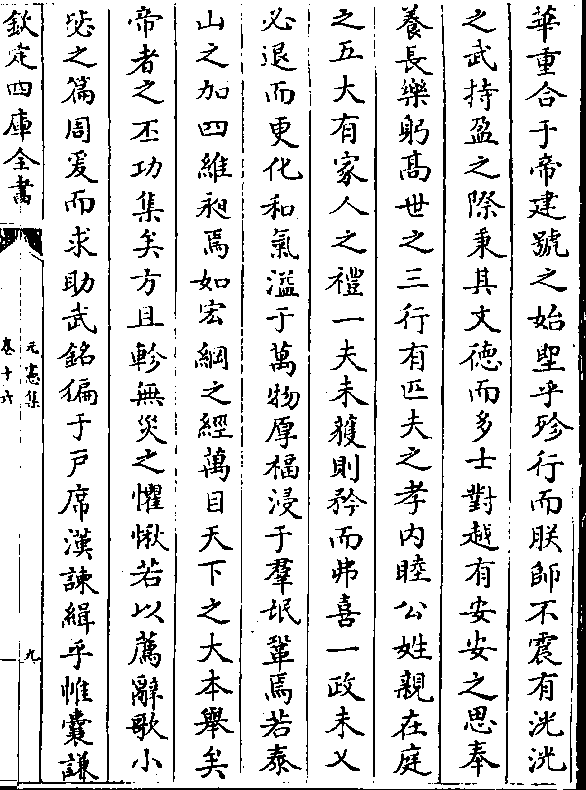 華重合于帝建號之始堲乎殄行而朕師不震有洸洸
之武持盈之際秉其文徳而多士對越有安安之思奉
養長樂躬髙世之三行有匹夫之孝内睦公姓親在庭
之五大有家人之禮一夫未獲則矜而弗喜一政未乂
必退而更化和氣溢于萬物厚福浸于羣氓鞏焉若泰
山之加四維昶焉如宏綱之經萬目天下之大本舉矣
帝者之丕功集矣方且軫無災之懼愀若以薦辭歌小
毖之篇周爰而求助武銘徧于戸席漢諫緝乎帷囊謙
欽定四庫全書
元憲集
卷十六
九